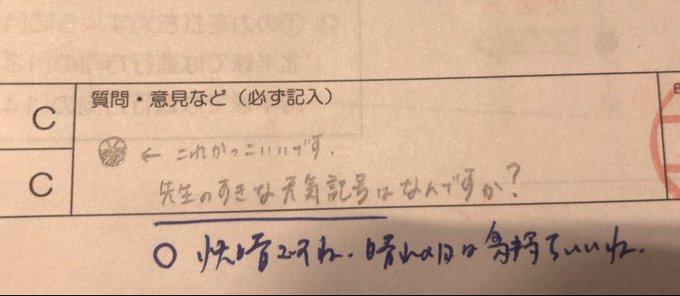 質問・意見など（必ず記入）
C
← これかっこいいです.
C
先生のすきな天気記号はなんですか?
○ 快晴ですね. 晴れの日は気持ちいいね.